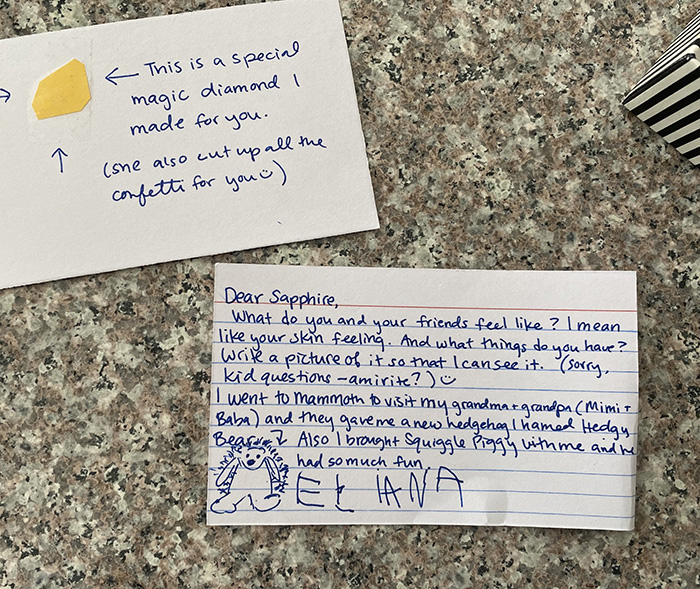 This is a special
magic diamond I
made for you.
(she also cut up all the
confetti for you☺)
Dear Sapphire,
What do you and your friends feel like? I mean
like your skin feeling. And what things do you have?
Write a picture of it so that I can see it. (sorry,
kid questions - amirite?)☺
I went to Mammoth to visit my grandma + grandpa (Mimi +
Baba) and they gave me a new hedgehog I named Hedgy
Bear. Also I brought Squiggle Piggy with me and he
had so much fun.
ELIANA